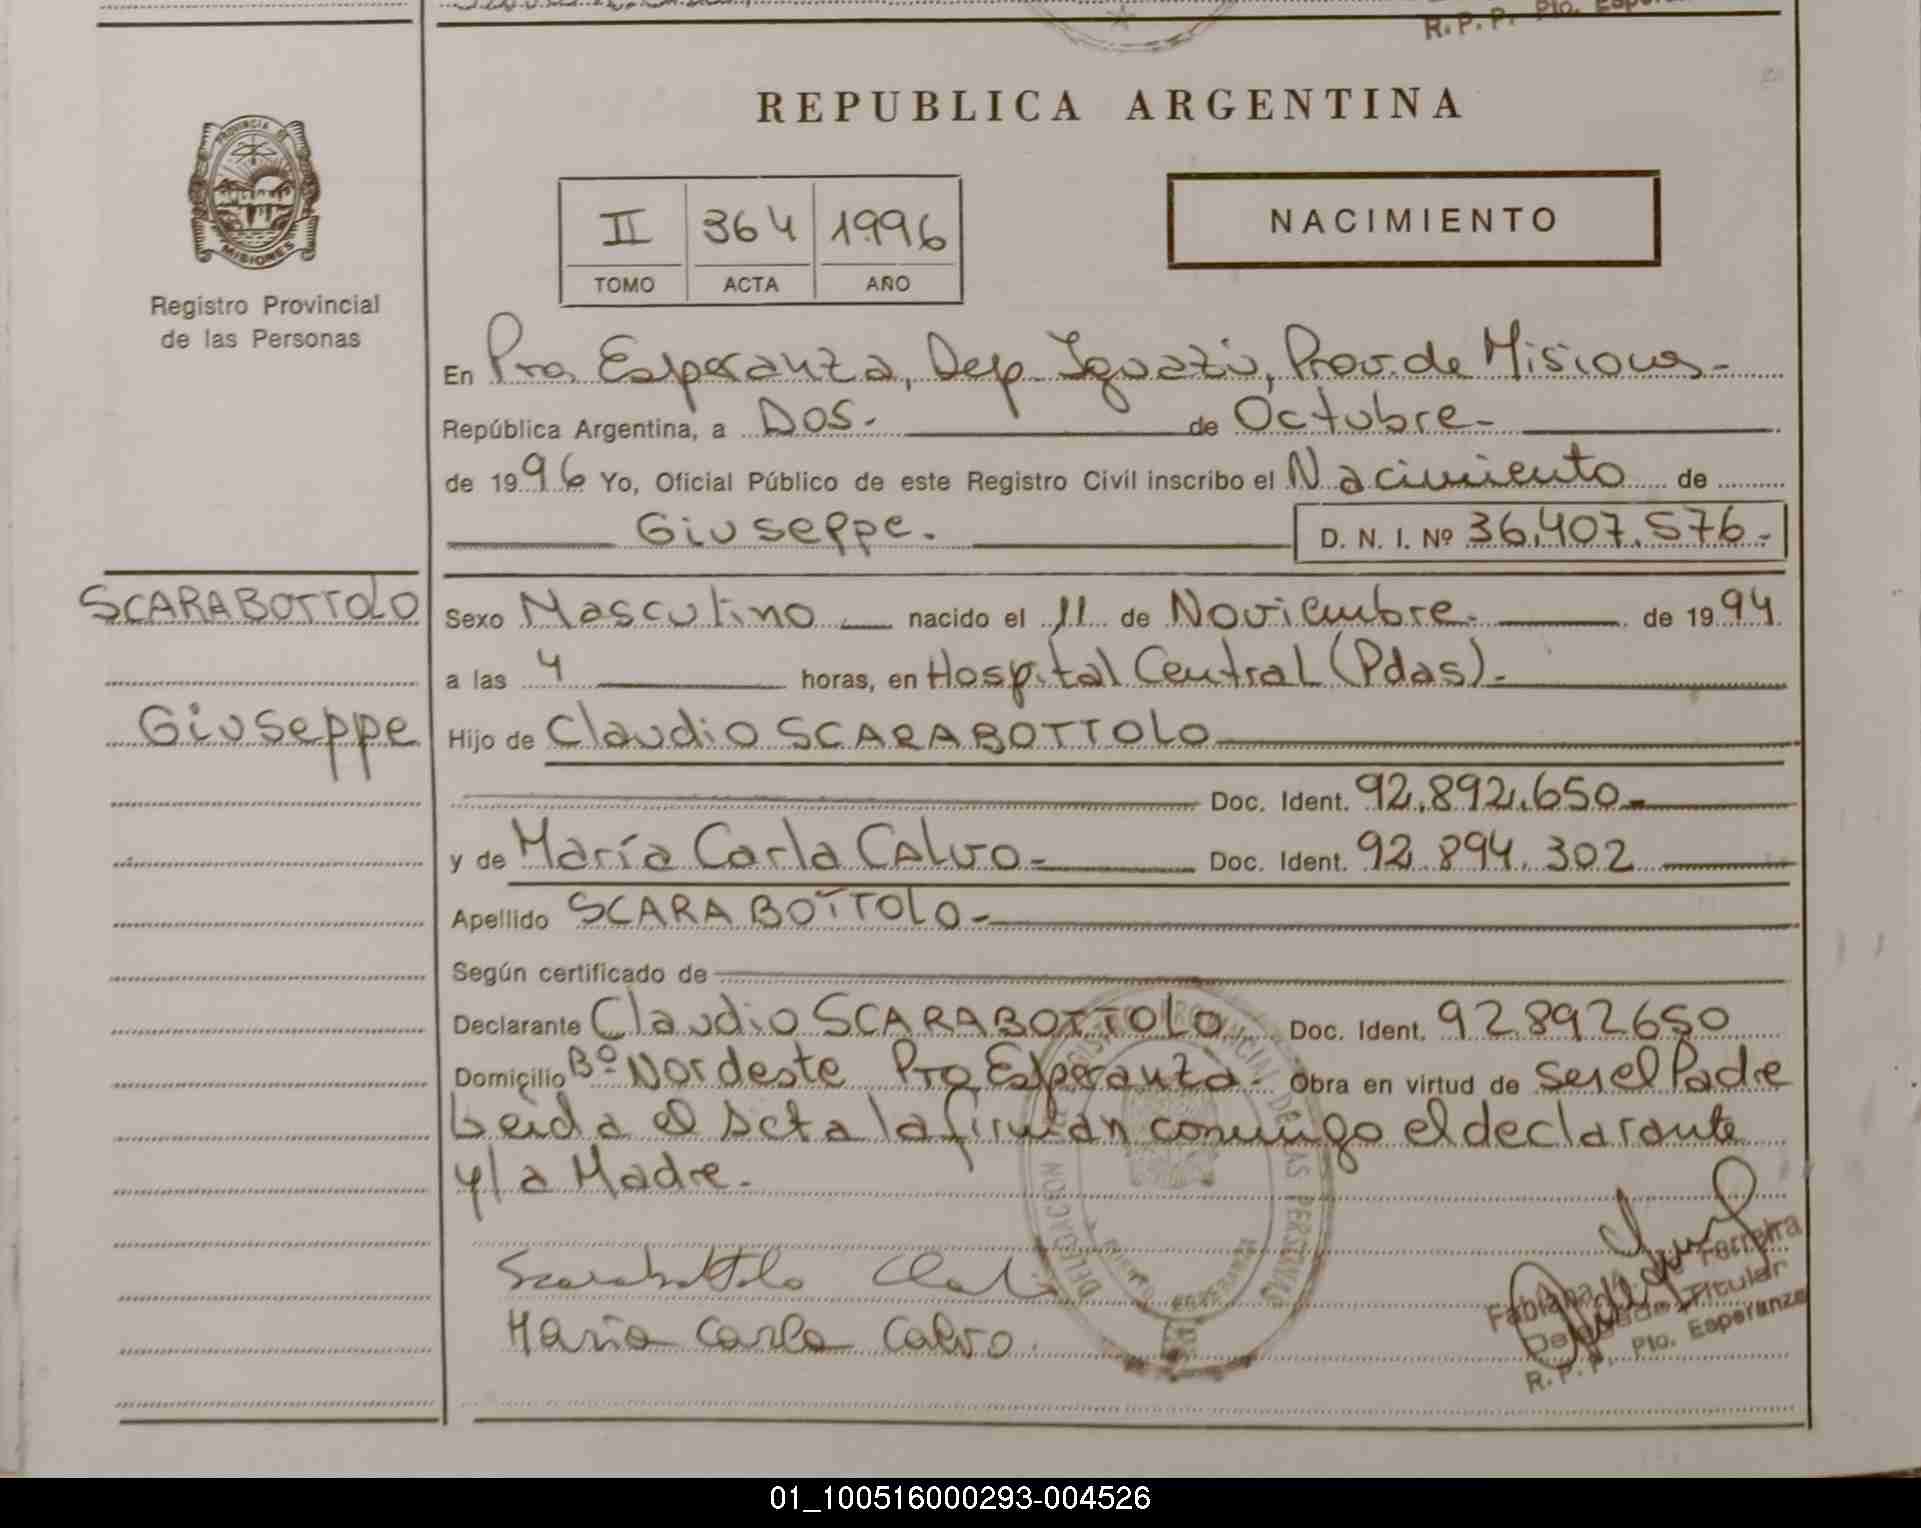 R.P.P. Pto.
REPUBLICA ARGENTINA
PROVINCIA DE
MISIONES
Registro Provincial
de las Personas
II 364 1996
TOMO ACTA AÑO
NACIMIENTO
En Pto. Esperanza, Dep. Iguazú, Prov. de Misiones.-
República Argentina, a Dos.- de Octubre.-
de 1996 Yo, Oficial Público de este Registro Civil inscribo el Nacimiento de
Giuseppe. D. N. I. Nº 36.407.576.-
SCARABOTTOLO
Giuseppe
Sexo Masculino nacido el 11 de Noviembre. de 1994
a las 4 horas, en Hospital Central (Pdas).-
Hijo de Claudio SCARABOTTOLO
Doc. Ident. 92.892.650-
y de María Carla CALVO- Doc. Ident. 92.894.302
Apellido SCARABOTTOLO-
Según certificado de
Declarante Claudio SCARABOTTOLO Doc. Ident. 92.892650
Domicilio Bº Nordeste Pto Esperanza. Obra en virtud de ser el Padre
Leida el acta la firman conmigo el declarante
y la Madre.-
Scarabottolo
María Carla Calvo.
DELEGACION REGISTRO PROVINCIAL DE LAS PERSONAS
Fabiana Ferreira
Delegada Titular
R.P.P. Pto. Esperanza
01_100516000293-004526